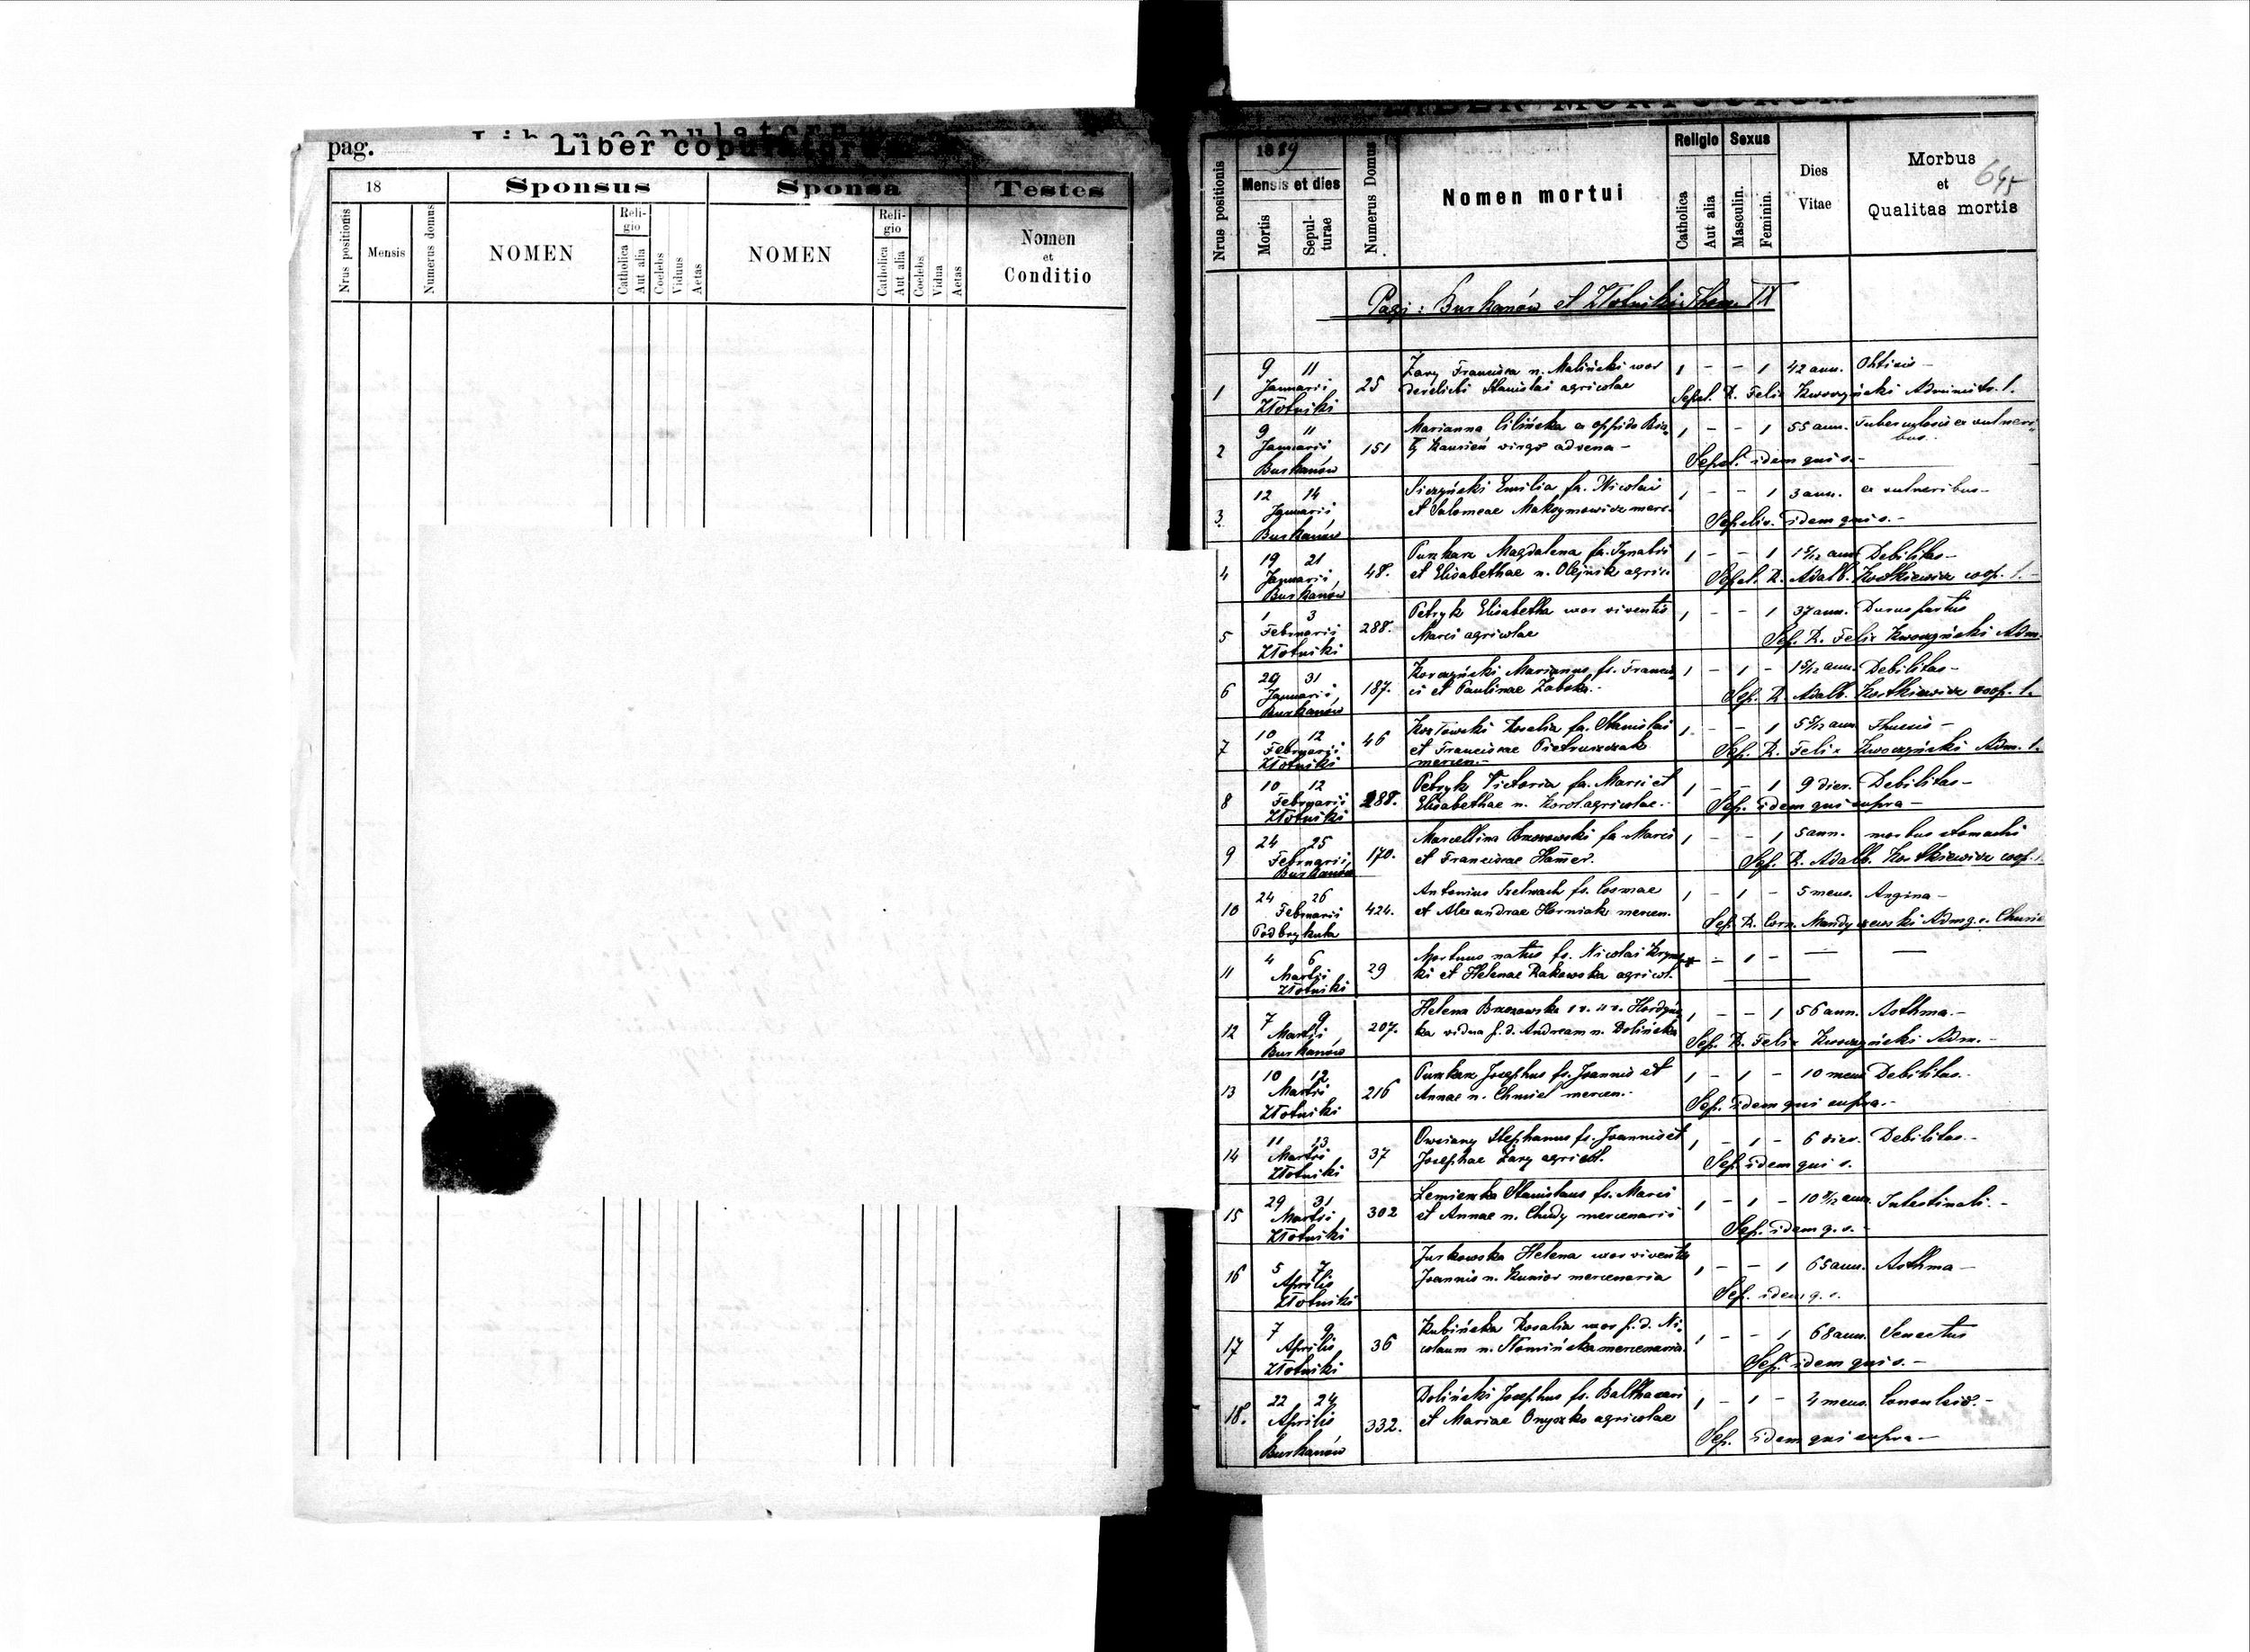 pag.
Liber copulatorum
18
Sponsus
Sponsa
Testes
Nrus positionis
Mensis
Numerus domus
NOMEN
Religio
Catholica
Aut alia
Coelebs
Viduus
Aetas
NOMEN
Religio
Catholica
Aut alia
Coelebs
Vidua
Aetas
Nomen
et
Conditio
LIBER MORTUORUM
Nrus positionis
1889
Mensis et dies
Mortis
Sepulturae
Numerus Domus
Nomen mortui
Religio
Catholica
Aut alia
Sexus
Masculin.
Feminin.
Dies
Vitae
Morbus
et
Qualitas mortis
Pagi: Burkanów et Złotniki Thom. IX
9 11 Żary Francisca n. Maliński uxor 1 - - 1 42 ann. Phtisis -
1 Januarii 25 derelicti Stanislai agricolae
Złotniki Sepel. R. Felix Administr. l.
9 11 Marianna Cilińska ex oppido 1 - - 1 55 ann. Tuberculosis ex vulneri
2 Januarii 151 virgo advena - bus.
Burkanów Sepel. idem qui s. -
12 14 Emilia fa. Nicolai 1 - - 1 3 ann. ex vulneribus -
3. Januarii et Salomeae Maksymowicz merc.
Burkanów Sepeliv. idem qui s. -
19 21 Puszkarz Magdalena fa. Ignatii 1 - - 1 1 5/12 ann. Debilitas -
4 Januarii 48. et Elisabethae n. Olejnik agric.
Burkanów Sepel. R. Adalb. coop. l. -
1 3 Petryk Elisabetha uxor viventis 1 - - 1 37 ann. Durus partus
5 Februarii 288. Marci agricolae
Złotniki Sep. R. Felix Adm.
29 31 Marianus fs. Francis 1 - 1 - 1 5/12 ann. Debilitas -
6 Januarii 187. ci et Paulinae
Burkanów Sep. R. Adalb. coop. l.
10 12 Kozłowski Rosalia fa. Stanislai 1 - - 1 5 5/12 ann. Thussis -
7 Februarii 46 et Franciscae Pietruszczak
Złotniki mercen. - Sep. R. Felix Adm. l.
10 12 Petryk Victoria fa. Marci et 1 - - 1 9 dier. Debilitas -
8 Februarii 288. Elisabethae n. Korol agricolae. -
Złotniki Sep. idem qui supra -
24 25 Marcellina Brzozowski fa. Marci 1 - - 1 5 ann. morbus stomachi
9 Februarii 170. et Franciscae Hamer.
Burkanów Sep. R. Adalb. coop. l.
24 26 Antonius Szelwach fs. Cosmae 1 - 1 - 5 mens. Angina -
10 Februarii 424. et Alexandrae Horniak mercen.
Podbrykula Sep. R. Corn. Mandyczewski Adm g. c.
4 6 Mortuus natus fs. Nicolai - 1 - — —
11 Martii 29 ki et Helenae Rakowska agricol.
Złotniki
7 9 Helena Brzozowska 1 - - 1 56 ann. Asthma. -
12 Martii 207. ka vidua p. d. Andream n. Dolińska
Burkanów Sep. R. Felix Adm. -
10 12 Puszkarz Josephus fs. Joannis et 1 - 1 - 10 mens. Debilitas. -
13 Martii 216 Annae n. Chmiel mercen. -
Złotniki Sep. idem qui supra. -
11 13 Owsiany Stephanus fs. Joannis et 1 - 1 - 6 dier. Debilitas. -
14 Martii 37 Josephae Żary agricol.
Złotniki Sep. idem qui s.
29 31 Lemieszka Stanislaus fs. Marci 1 - 1 - ann. Intestinali. -
15 Martii 302 et Annae n. Chudy mercenarii
Złotniki Sep. idem q. s. -
5 7 Jurkowska Helena uxor viventis 1 - - 1 65 ann. Asthma -
16 Aprilis Joannis n. mercenaria
Złotniki Sep. idem q. s.
7 9 Kubińska Rosalia uxor p. d. Ni 1 - - 1 68 ann. Senectus
17 Aprilis 36 colaum n. Słomińska mercenaria.
Złotniki Sep. idem qui s. -
22 24 Doliński Josephus fs. Balthasari 1 - 1 - 4 mens. Convulsio. -
18. Aprilis 332. et Mariae Onyszko agricolae
Burkanów Sep. idem qui supra -